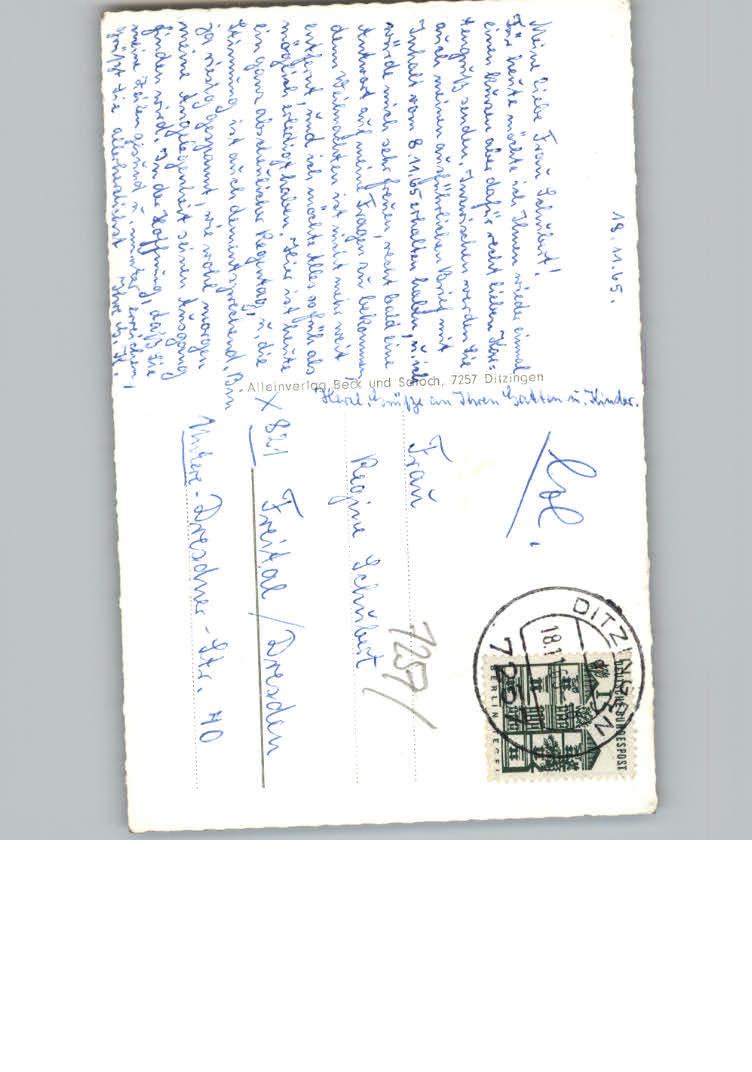 18.11.65.
Meine liebe Frau Schubert!
Für heute möchte ich Ihnen wieder einmal
einen kurzen aber dafür recht lieben Kar-
tengruß senden. Inzwischen werden Sie
auch meinen ausführlichen Brief mit
Inhalt vom 8.11.65 erhalten haben, u. ich
würde mich sehr freuen, recht bald eine
Antwort auf meine Fragen zu bekommen,
denn Weihnachten ist nicht mehr weit
entfernt, und ich möchte alles so früh als
möglich erledigt haben. Hier ist heute
ein ganz abscheulicher Regentag, u. die
Stimmung ist auch dementsprechend. Bin
ja riesig gespannt, wie wohl morgen
meine Angelegenheit seinen Ausgang
finden wird. In der Hoffnung, daß Sie
meine Zeilen gesund u. munter erreichen,
grüßt Sie allerherzlichst Ihre
Herzl. Grüße an Ihren Gatten u. Kinder.
Alleinverlag Beck und Schoch, 7257 Ditzingen
Frau
Regine Schubert
7257/
X 821 Freital / Dresden
Untere-Dresdner-Str. 40
DITZINGEN
18.11
7257
DEUTSCHE BUNDESPOST
BERLIN TEGEL